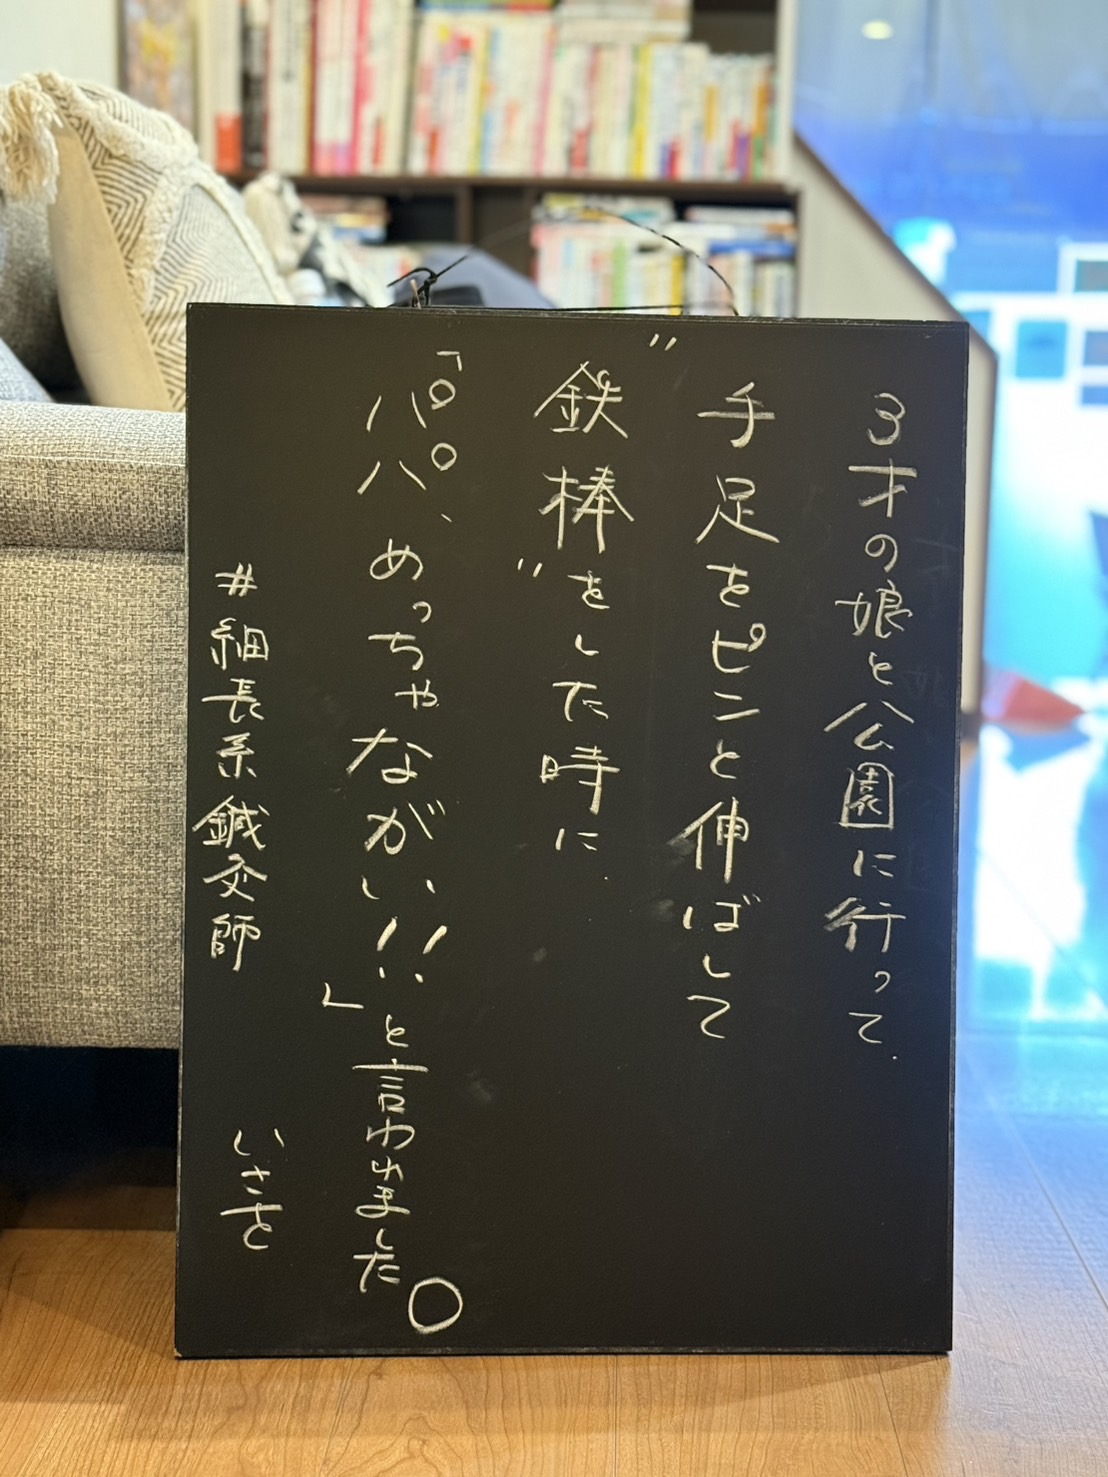 3才の娘と公園に行って、
手足をピンと伸ばして
"鉄棒"をした時に、
「パパ、めっちゃながい!!」と言われました。
#細長系鍼灸師
いさを